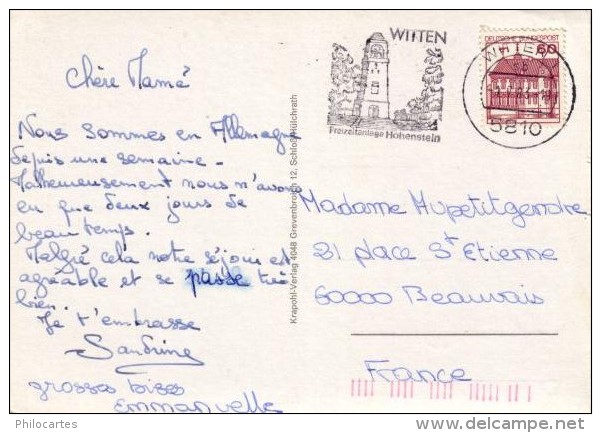 Chère Mamé
Nous sommes en Allemagne
depuis une semaine -
Malheureusement nous n'avons
eu que deux jours de
beau temps.
Malgré cela notre séjour est
agréable et se passe très
bien.
Je t'embrasse
Sandrine
grosses bises
Emmanuelle
Krapohl-Verlag 4048 Grevenbroich 12, Schloß Hülchrath
WITTEN
Freizeitanlage Hohenstein
DEUTSCHE BUNDESPOST
60
WITTEN
5810
Madame Hupetitgendre
21 place St Etienne
60000 Beauvais
France
Philocartes
delcampe.net